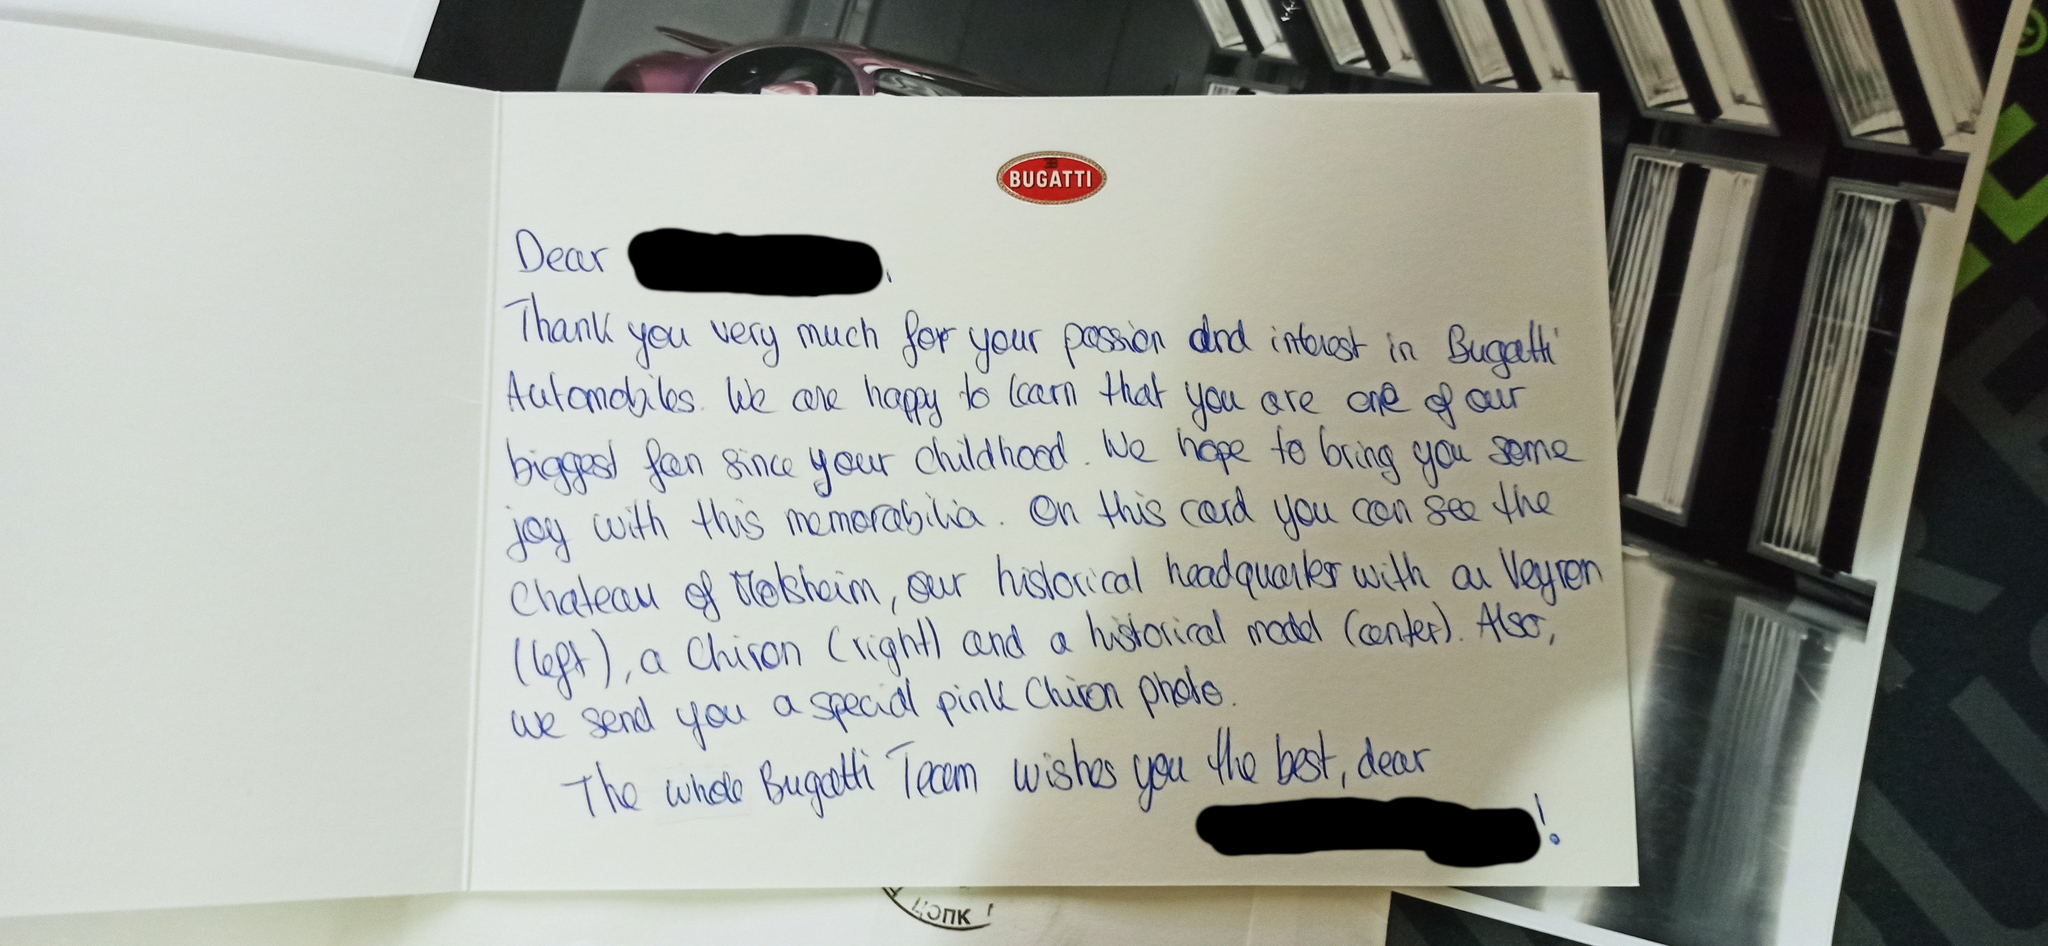 BUGATTI
Dear
Thank you very much for your passion and interest in Bugatti
Automobiles. We are happy to learn that you are one of our
biggest fan since your childhood. We hope to bring you some
joy with this memorabilia. On this card you can see the
Chateau of Molsheim, our historical headquarter with a Veyron
(left), a Chiron (right) and a historical model (center). Also,
we send you a special pink Chiron photo.
The whole Bugatti Team wishes you the best, dear
!
ЦОПК